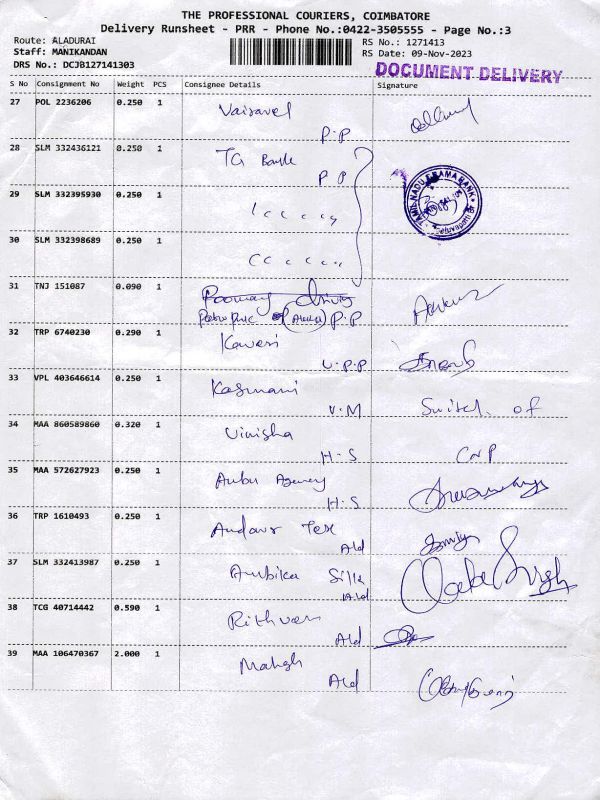 THE PROFESSIONAL COURIERS, COIMBATORE
Delivery Runsheet - PRR - Phone No.:0422-3505555 - Page No.:3
Route: ALADURAI
Staff: MANIKANDAN
DRS No.: DCJB127141303
RS No.: 1271413
RS Date: 09-Nov-2023
DOCUMENT DELIVERY
S No Consignment No Weight PCS Consignee Details Signature
27 POL 2236206 0.250 1 Vairavel
P.P
28 SLM 332436121 0.250 1 TG Bank
P P
TAMIL NADU GRAMA BANK
29 SLM 332395930 0.250 1
30 SLM 332398689 0.250 1
31 TNJ 151087 0.090 1
P.P
32 TRP 6740230 0.290 1 Kaveri
V.P.P
33 VPL 403646614 0.250 1 Kasmani Switch of
V.M
34 MAA 860589860 0.320 1 Vinisha
H-S CNP
35 MAA 572627923 0.250 1 Anbu Agency
H-S
36 TRP 1610493 0.250 1 Andavr Tex
Ald
37 SLM 332413987 0.250 1 Ambika Silk
Ald
38 TCG 40714442 0.590 1 Rithvan
Ald
39 MAA 106470367 2.000 1 Mahesh
Ald